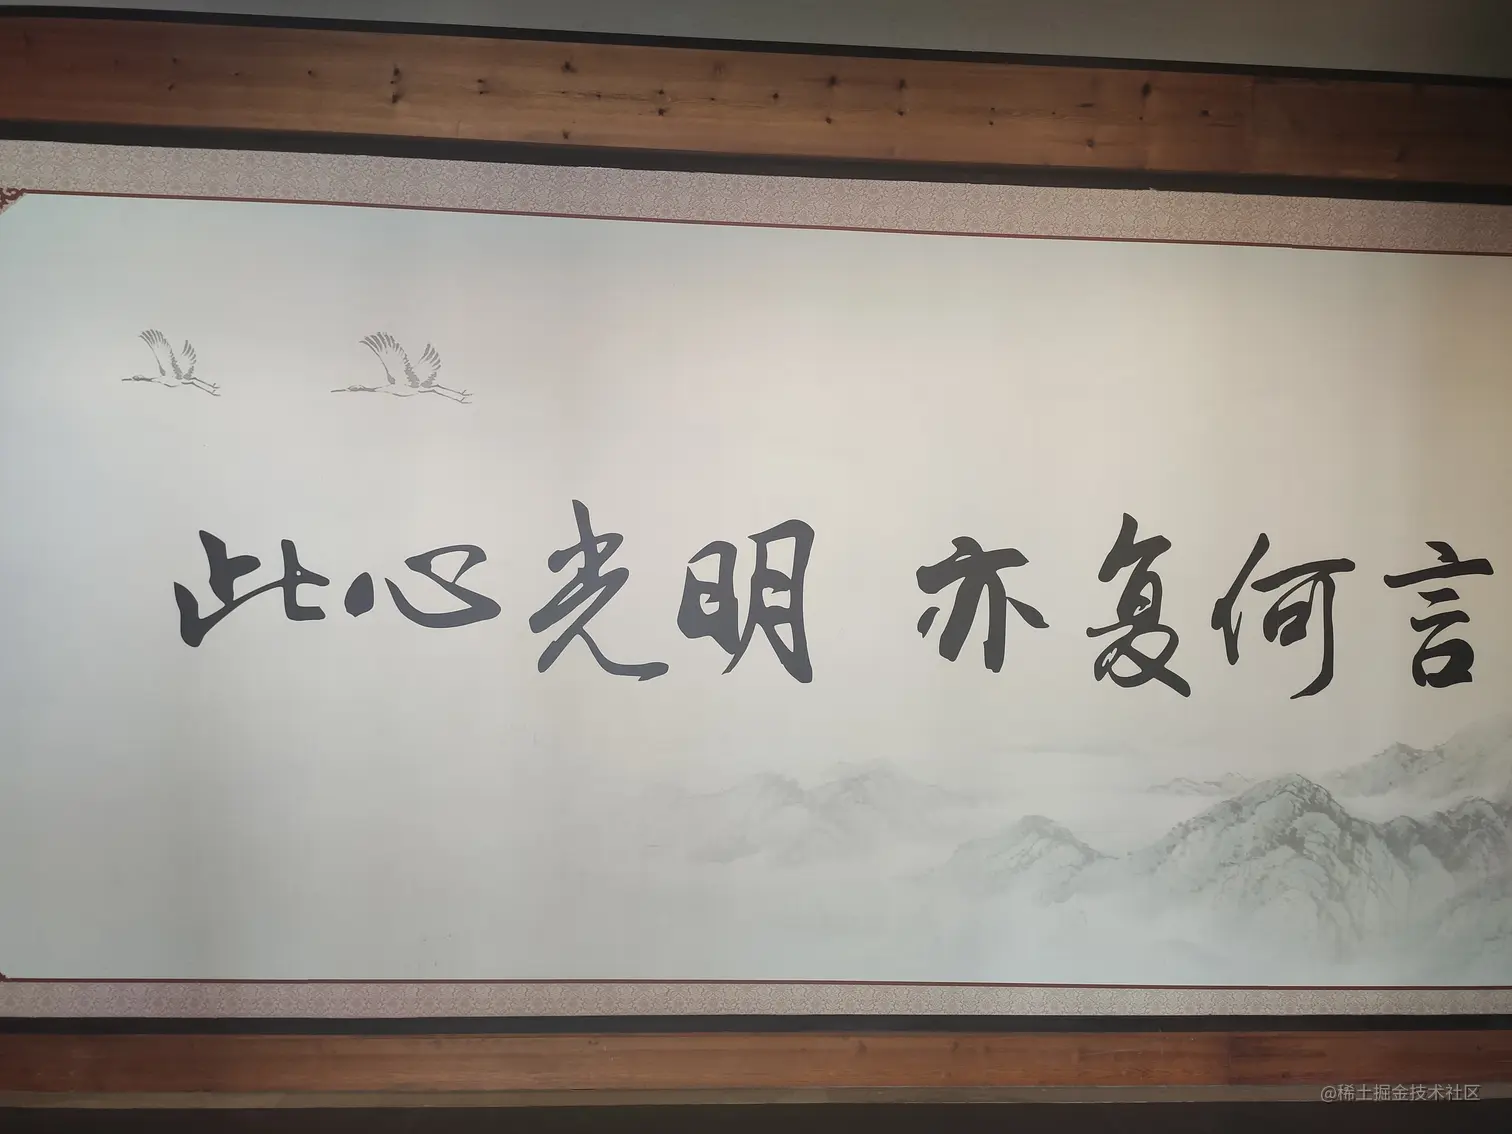 此心光明 亦复何言
@稀土掘金技术社区